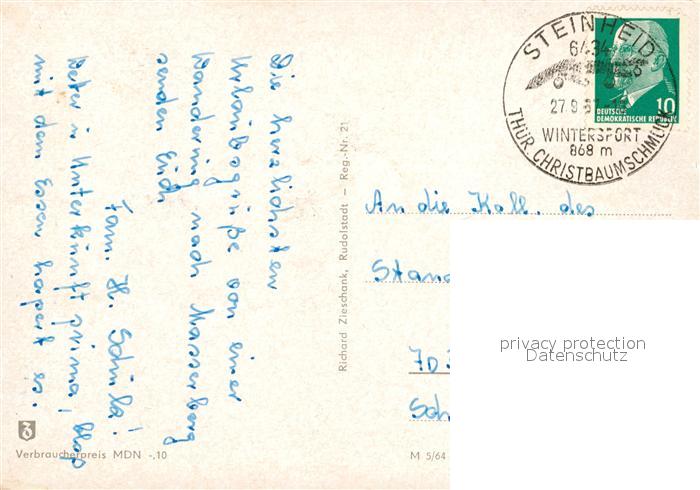 Die herzlichsten
Urlaubsgrüße von einer
Wanderung nach Masserberg
senden Euch
Fam. H.
Wetter u. Unterkunft prima!
mit dem Essen hapert es.
Richard Zieschank, Rudolstadt — Reg.-Nr. 21
STEINHEID
6434
27.9.6
WINTERSPORT
868 m
THÜR. CHRISTBAUMSCHMUCK
10
DEUTSCHE
DEMOKRATISCHE REPUBLIK
An die Koll. des
privacy protection
Datenschutz
Verbraucherpreis MDN -,10
M 5/64